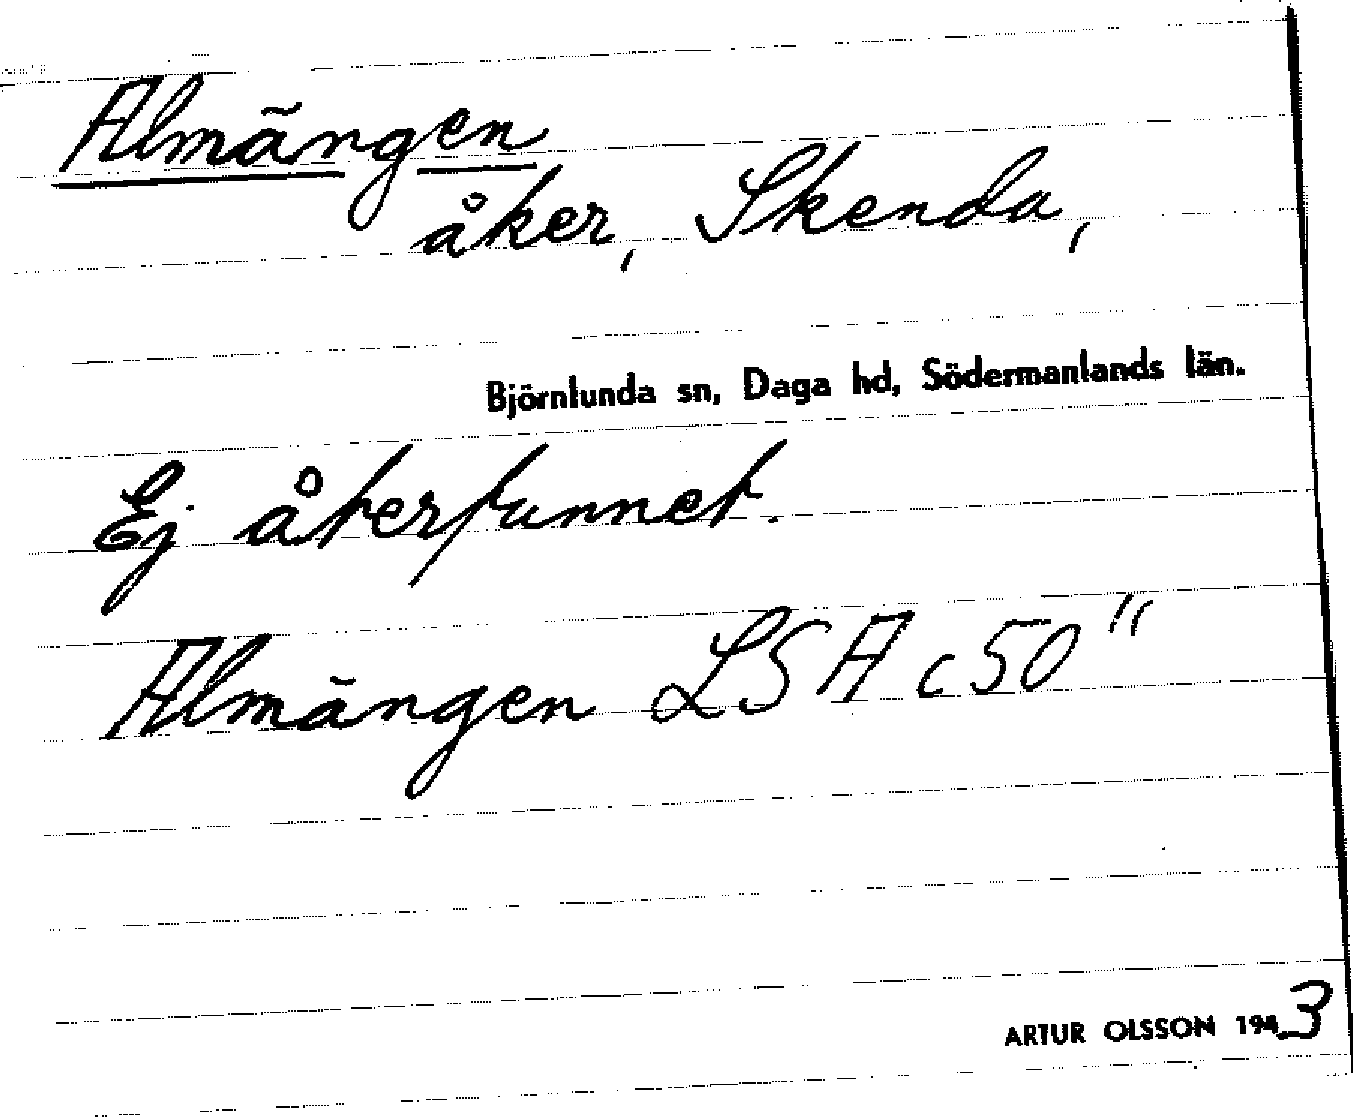 Almängen
åker, Skenda,
Björnlunda sn, Daga hd, Södermanlands län.
Ej återfunnet.
Almängen LSA c 50"
ARTUR OLSSON 1943